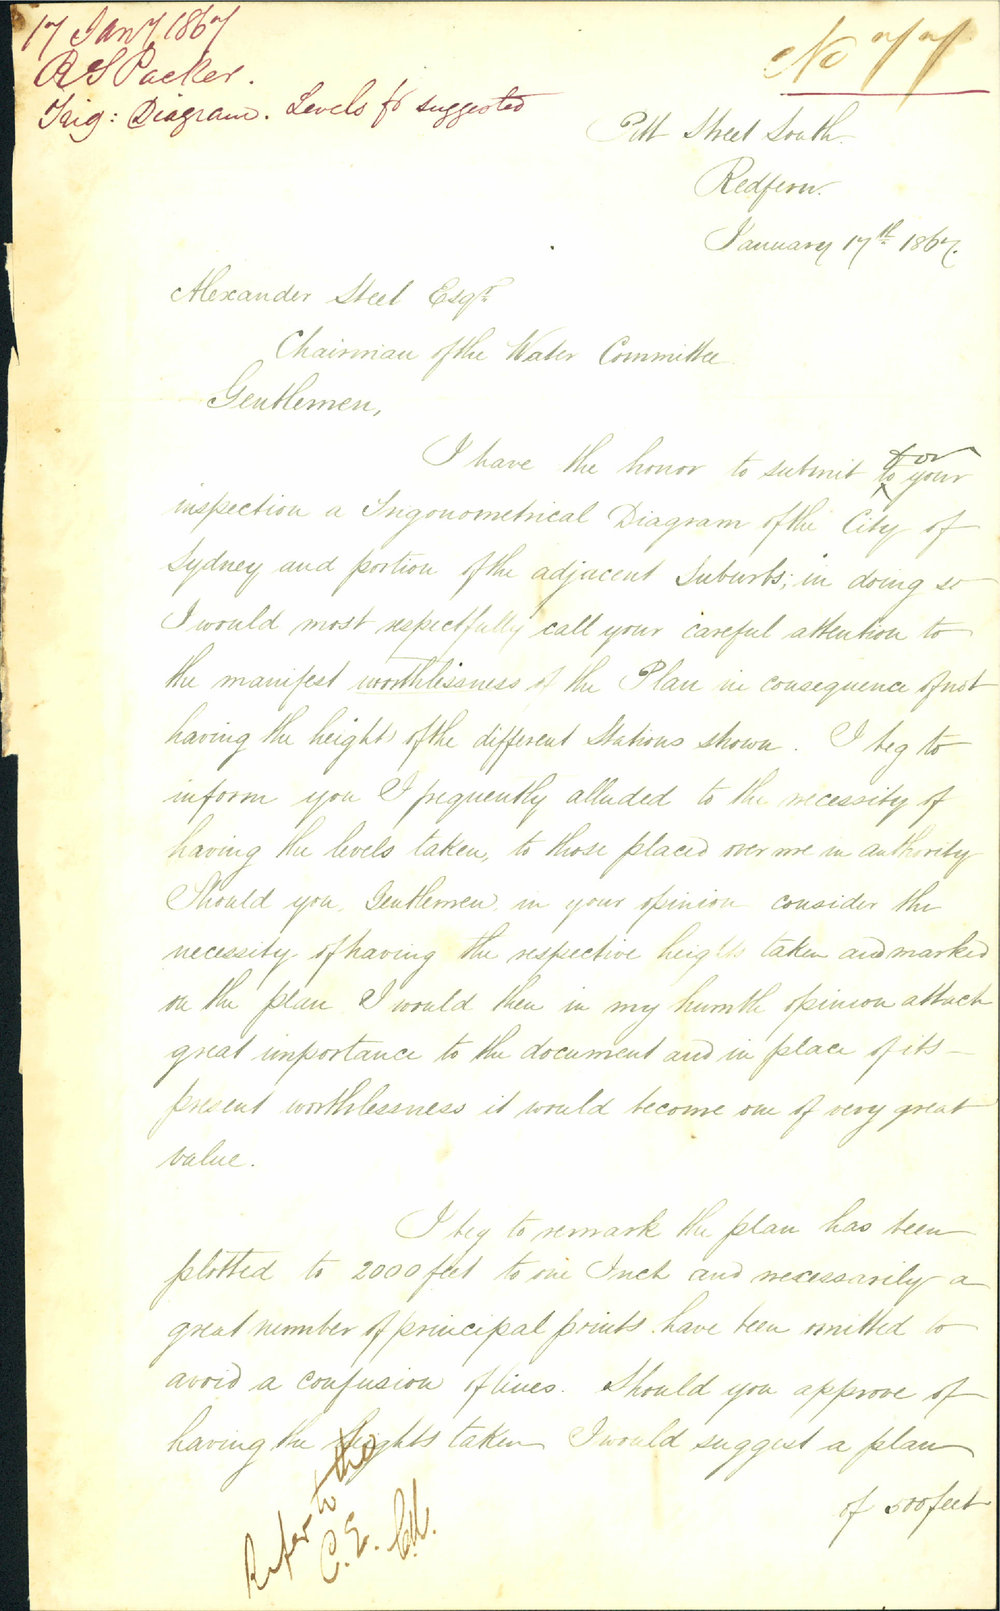 17 Jany 1867
R S Packer.
Trig: Diagram. Levels &c suggested
No 77
Pitt Street South.
Redfern.
January 17th 1867.
Alexander Steel Esqr
Chairman of the Water Committee
Gentlemen,
I have the honor to submit to for your
inspection a Trigonometrical Diagram of the City of
Sydney and portion of the adjacent Suburbs; in doing so
I would most respectfully call your careful attention to
the manifest worthlessness of the Plan in consequence of not
having the heights of the different Stations shown. I beg to
inform you I frequently alluded to the necessity of
having the levels taken, to those placed over me in authority
Should you, Gentlemen, in your opinion consider the
necessity of having the respective heights taken and marked
on the plan I would then in my humble opinion attach
great importance to the document and in place of its
present worthlessness it would become one of very great
value.
I beg to remark the plan has been
plotted to 2000 feet to one Inch and necessarily a
great number of principal points have been omitted to
avoid a confusion of lines. Should you approve of
having the heights taken I would suggest a plan
of 500 feet
Refer to the
C.E.